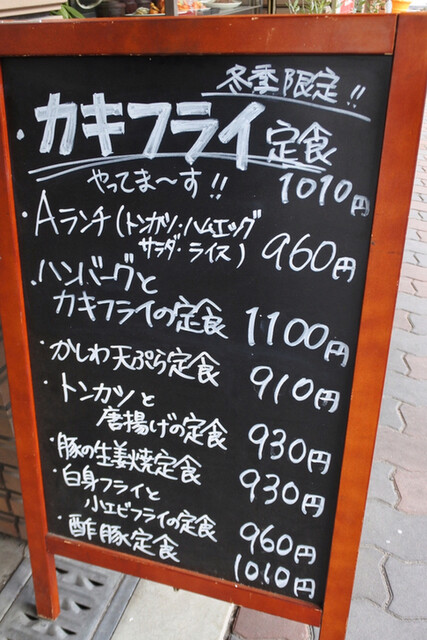 冬季限定!!
・カキフライ定食
やってま〜す!! 1010円
・Aランチ(トンカツ・ハムエッグ
サラダ・ライス) 960円
・ハンバーグと
カキフライの定食 1100円
・かしわ天ぷら定食 910円
・トンカツと
唐揚げの定食 930円
・豚の生姜焼定食 930円
・白身フライと
小エビフライの定食 960円
・酢豚定食 1010円